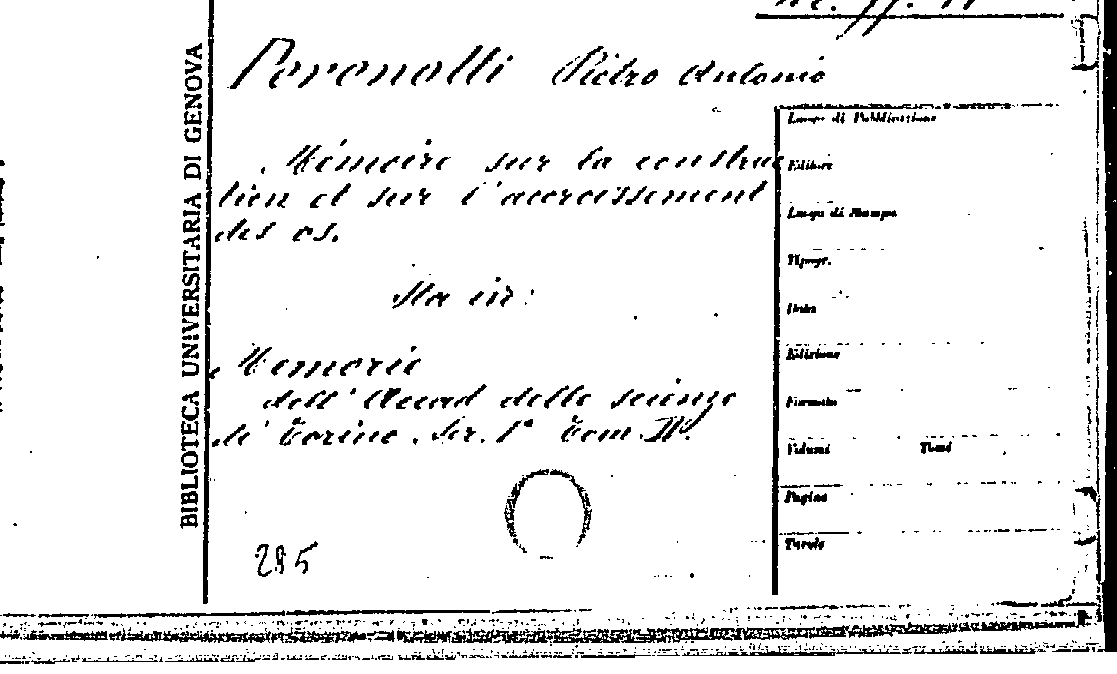 BIBLIOTECA UNIVERSITARIA DI GENOVA
Perenotti Pietro Antonio
Mémoire sur la construc
tion et sur l'accroissement
des os.
Sta in:
Memorie
dell'Accad. delle scienze
di Torino. Ser. 1ª Tom. II°.
295
Luogo di Pubblicazione
Editore
Luogo di stampa
Tipogr.
Data
Edizione
Formato
Volumi Tomi
Pagine
Tavole